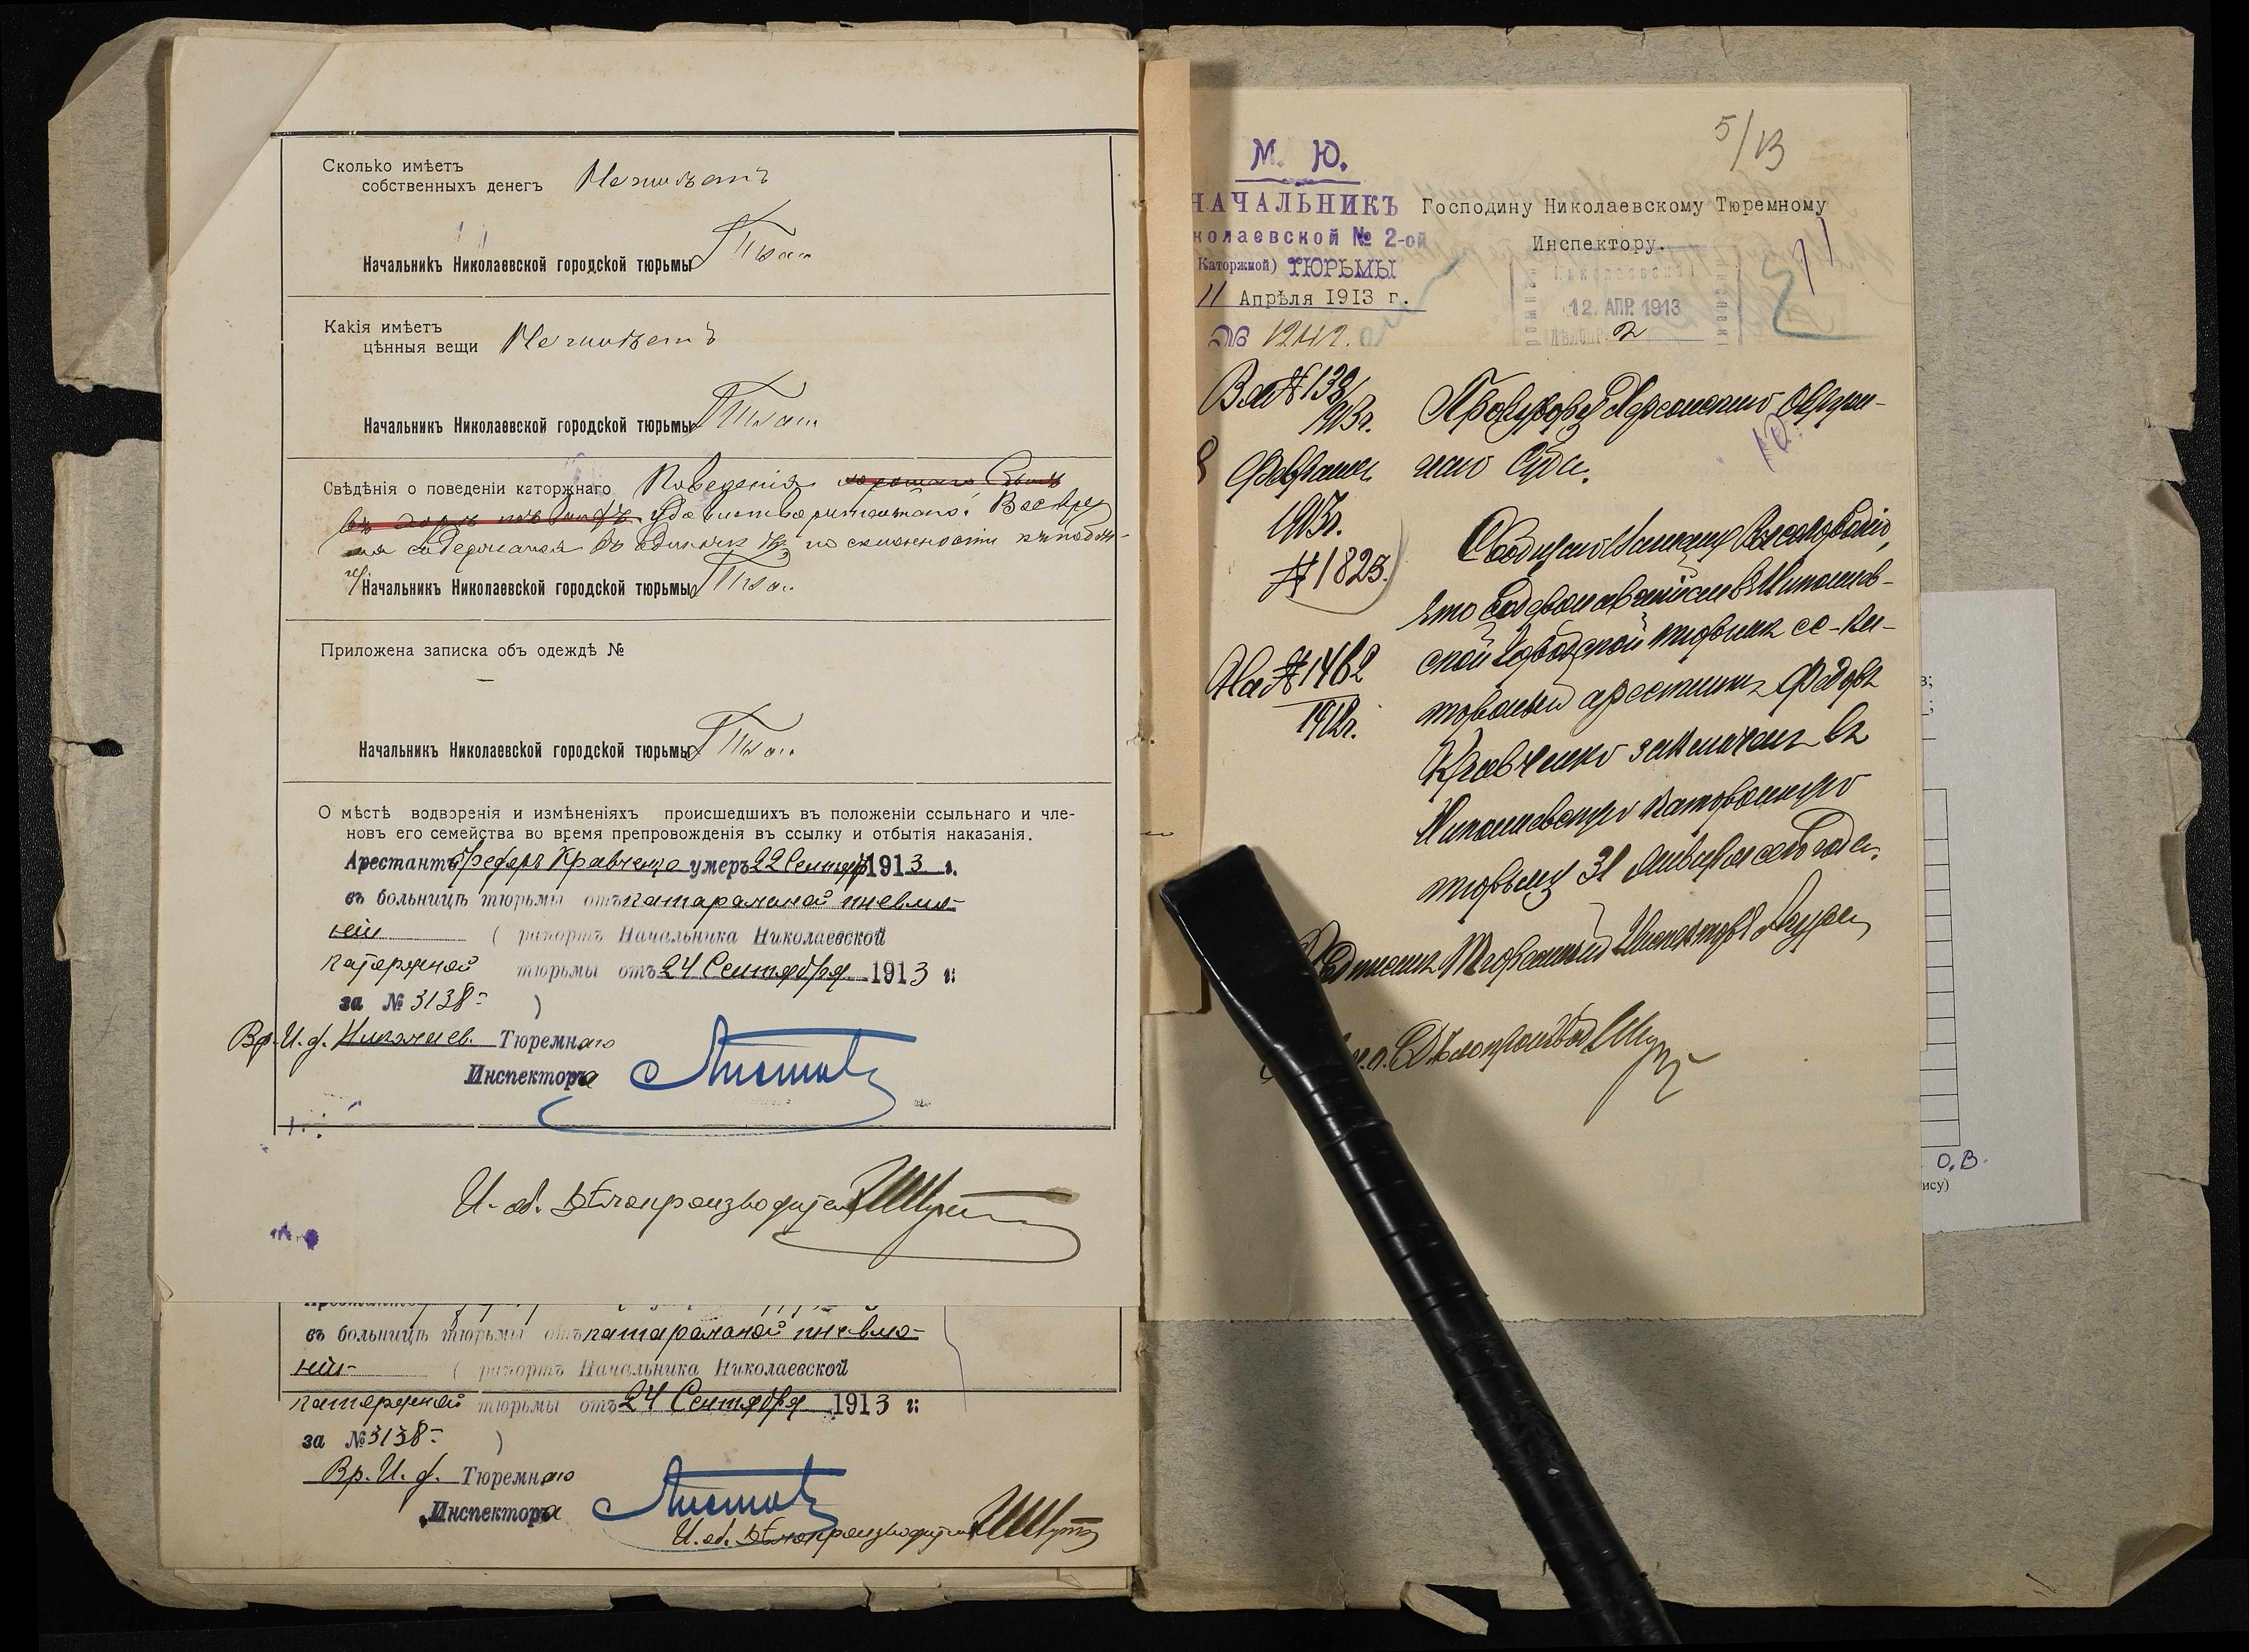 Сколько имѣетъ
собственныхъ денегъ Не имѣетъ
Начальникъ Николаевской городской тюрьмы
Какія имѣетъ
цѣнныя вещи Не имѣетъ
Начальникъ Николаевской городской тюрьмы
Свѣдѣнія о поведеніи каторжнаго Поведенія
удовлетворительнаго. Все время
содержался въ одиночк по склонности къ побѣ-
гу.
Начальникъ Николаевской городской тюрьмы
Приложена записка объ одеждѣ №
Начальникъ Николаевской городской тюрьмы
О мѣстѣ водворенія и измѣненіяхъ происшедшихъ въ положеніи ссыльнаго и чле-
новъ его семейства во время препровожденія въ ссылку и отбытія наказанія.
Арестантъ Федоръ Кравченко умеръ 22 Сентяб 1913 г.
въ больницѣ тюрьмы отъ катаральной пневмо-
ніи ( рапортъ Начальника Николаевской
каторжной тюрьмы отъ 24 Сентября 1913 г:
за № 3138 )
Вр. И. д. Николаев. Тюремнаго
Инспектора
И. об. Дѣлопроизводителя
въ больницѣ тюрьмы отъ катаральной пневмо-
ніи ( рапортъ Начальника Николаевской
каторжной тюрьмы отъ 24 Сентября 1913 г:
за № 3138 )
Вр. И. д. Тюремнаго
Инспектора
И. об. Дѣлопроизводителя
5/13
М. Ю.
НАЧАЛЬНИКЪ
колаевской № 2-ой
Каторжной) ТЮРЬМЫ
11 Апрѣля 1913 г.
№ 1242.
Господину Николаевскому Тюремному
Инспектору.
12. АПР. 1913
2
1913г.
Февраля
1913г.
№ 1823.
На № 1462
1912г.
Прокурору Херсонскаго Окруж-
наго Суда.
Сообщаю Вашему Высокородію,
что содержавшійся въ Николаев-
ской Городской тюрьмѣ сс-ка-
торжный арестантъ Федоръ
Кравченко заключенъ въ
Николаевскую Каторжную
тюрьму 31 Января сего года.
Подписалъ Тюремный Инспекторъ
Дѣлопроизвод
О.В.
ису)